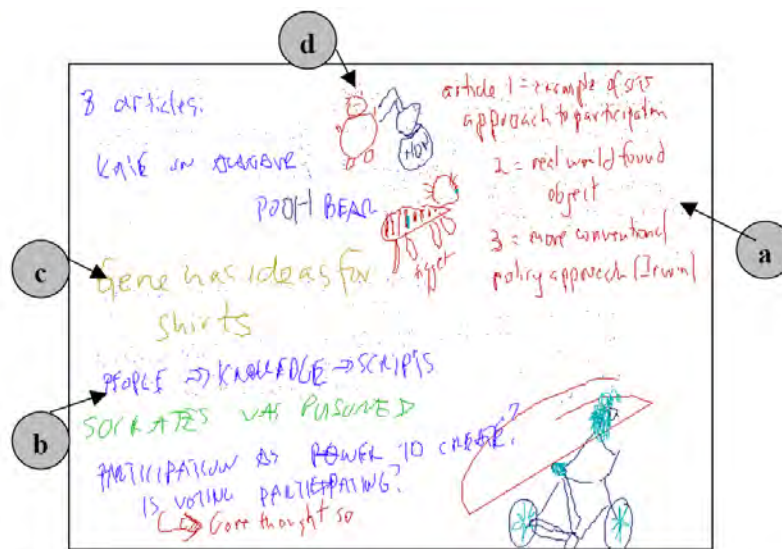 d
8 articles.
article 1 = example of
approach to participation
HUNNY
2 = real world found
object
POOH BEAR
a
3 = more conventional
policy approach (Irwin)
c
Gene has ideas for
shirts
PEOPLE => KNOWLEDGE => SCRIPTS
b
SOCRATES WAS POISONED
PARTICIPATION AS POWER TO CREATE?
IS VOTING PARTICIPATING?
Gore thought so